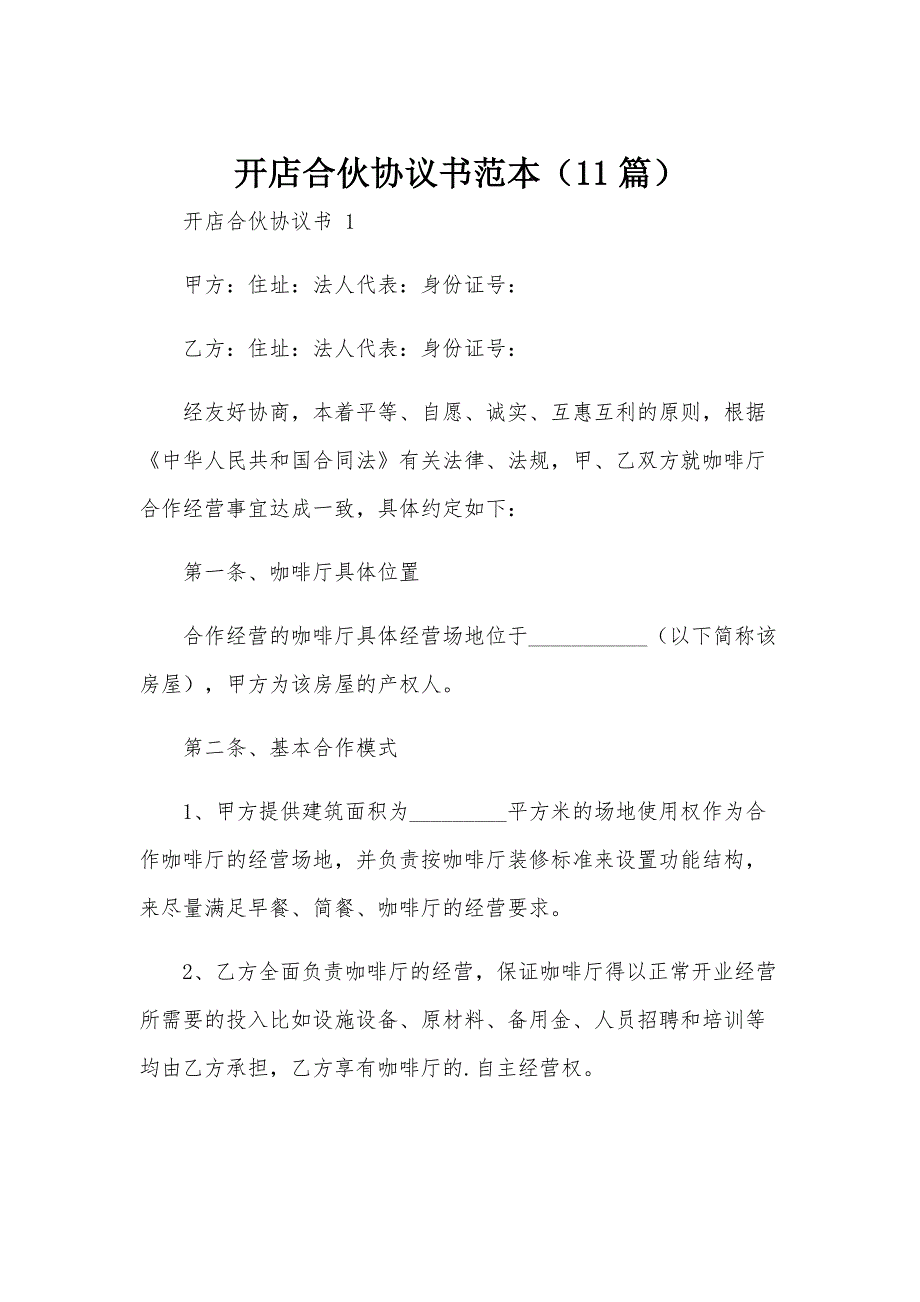 开店合伙协议书范本（11 篇）
开店合伙协议书 1
甲方：住址：法人代表：身份证号：
乙方：住址：法人代表：身份证号：
经友好协商，本着平等、自愿、诚实、互惠互利的原则，根据
《中华人民共和国合同法》有关法律、法规，甲、乙双方就咖啡厅
合作经营事宜达成一致，具体约定如下：
第一条、咖啡厅具体位置
合作经营的咖啡厅具体经营场地位于___________（以下简称该
房屋），甲方为该房屋的产权人。
第二条、基本合作模式
1、甲方提供建筑面积为_________平方米的场地使用权作为合
作咖啡厅的经营场地，并负责按咖啡厅装修标准来设置功能结构，
来尽量满足早餐、简餐、咖啡厅的经营要求。
2、乙方全面负责咖啡厅的经营，保证咖啡厅得以正常开业经营
所需要的投入比如设施设备、原材料、备用金、人员招聘和培训等
均由乙方承担，乙方享有咖啡厅的.自主经营权。